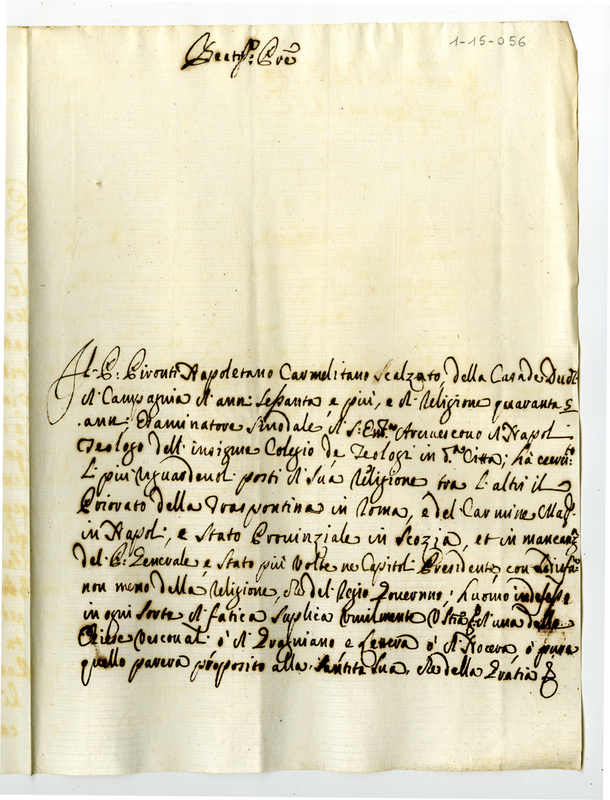 1-15-056
Beatiss.º P̃re
Il P: Pironti Napoletano Carmelitano Scalzato, della Casa de Duchi
di Campagnia di anni sessanta e più, e di Religione quaranta
anni, Esaminatore Sinodale, di S: Em.ª Arcivescovo di Napoli
Teologo dell'insigne Colegio de Teologi in d.ª Città; hà
li più riguardevoli posti di sua Religione tra l'altri il
Priorato della Traspontina in Roma, e del Carmine Mag.
in Napoli, e stato Provinziale in Scozia, et in mancanza
del P: Generale è stato più volte ne Capitoli Presidente, con
non meno della Religione, che del Regio Governno; huomo indefesso
in ogni sorte di fatica supplica umilmente V. Stà di una delle
Chiese Vescovali ò di Gragniano e Lettera ò di Nocera, ò pure
quello parerà proposito alla Santità Sua, che della Gratia